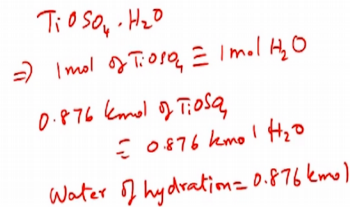 TiOSO₄ · H₂O
⇒ 1 mol of TiOSO₄ ≡ 1 mol H₂O
0.876 kmol of TiOSO₄
≡ 0.876 kmol H₂O
Water of hydration = 0.876 kmol